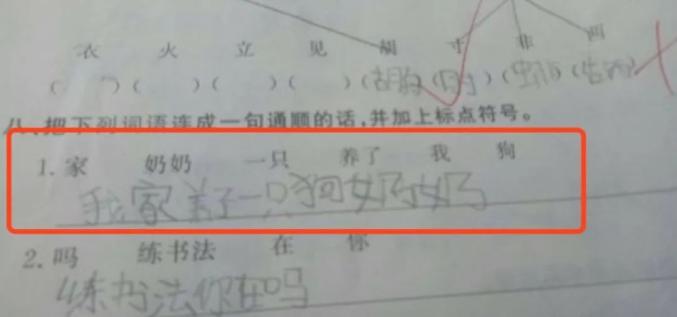 衣 火 立 见 胡 寸 非 四
( )( )( )( )(胡)( )( )( )
八、把下列词语连成一句通顺的话,并加上标点符号。
1. 家 奶奶 一只 养了 我 狗
我家养了一只狗奶奶
2. 吗 练书法 在 你
练书法你在吗